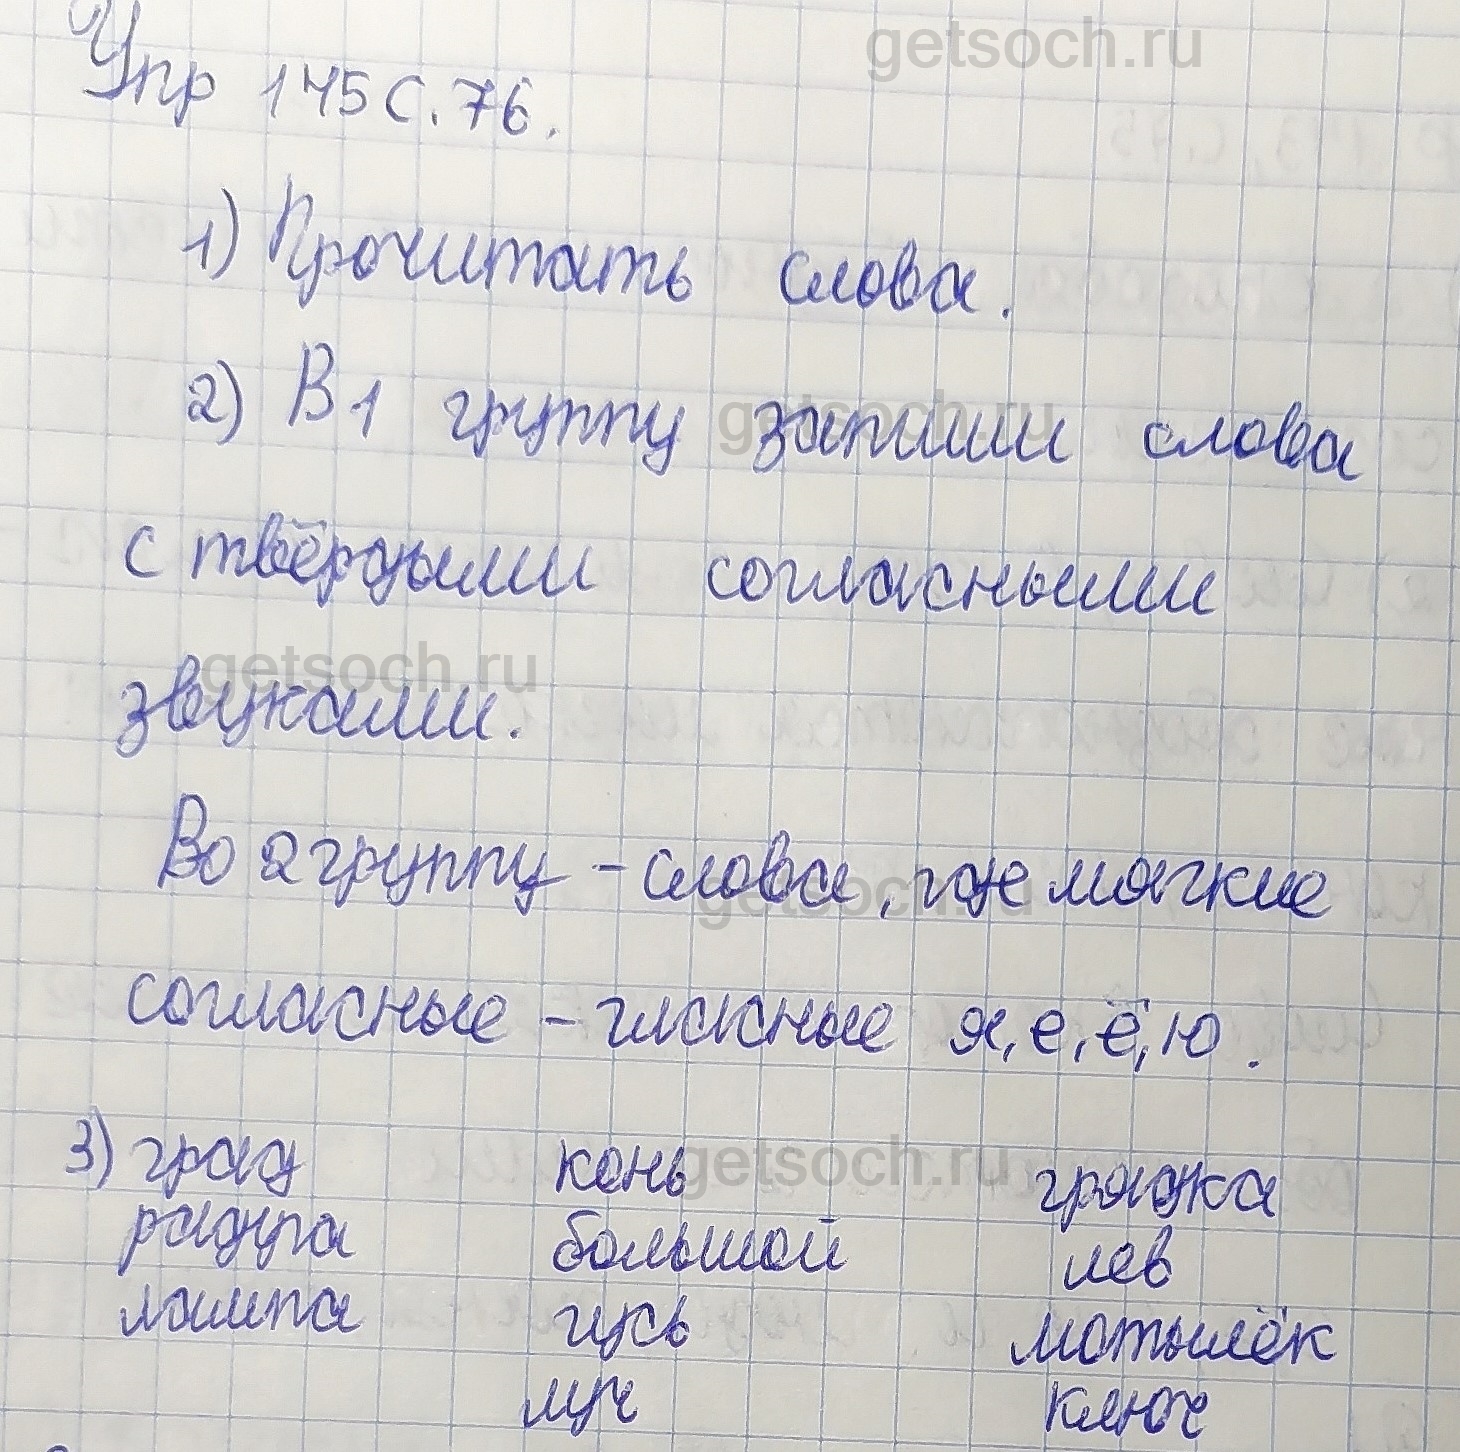 getsoch.ru
Упр 145 с. 76.
1) Прочитать слова.
2) В 1 группу запиши слова
getsoch.ru
с твёрдыми согласными
getsoch.ru
звуками.
Во 2 группу – слова, где мягкие
getsoch.ru
согласные – гласные я, е, ё, ю.
3) град конь грядка
getsoch.ru
радуга большой лев
лампа гусь мотылёк
луч ключ